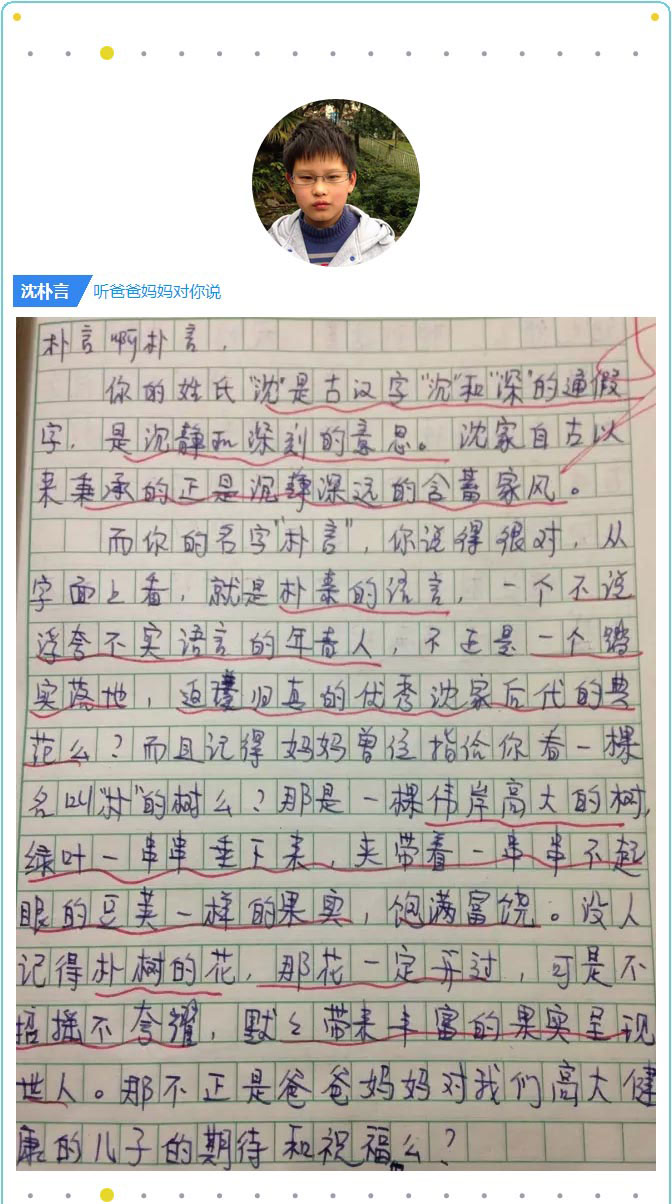 沈朴言 听爸爸妈妈对你说
朴言啊朴言，
你的姓氏“沈”是古汉字“沉”和“深”的通假
字，是沉静和深刻的意思。沈家自古以
来秉承的正是沉静深远的含蓄家风。
而你的名字“朴言”，你说得很对，从
字面上看，就是朴素的语言，一个不说
浮夸不实语言的年青人，不正是一个踏
实落地，返璞归真的优秀沈家后代的典
范么？而且记得妈妈曾经指给你看一棵
名叫“朴”的树么？那是一棵伟岸高大的树，
绿叶一串串垂下来，夹带着一串串不起
眼的豆荚一样的果实，饱满富饶。没人
记得朴树的花，那花一定开过，可是不
招摇不夸耀，默々带来丰富的果实呈现
世人。那不正是爸爸妈妈对我们高大健
康的儿子的期待和祝福么？